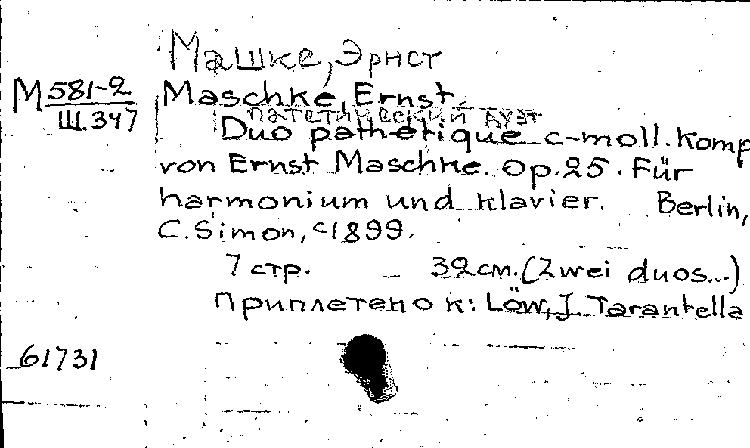 Машке, Эрнст
М 581-2
Ш.347
Maschke, Ernst.
патетический дуэт
Duo pathétique c-moll. Komp
von Ernst Maschke. Op. 25. Für
harmonium und klavier. Berlin,
C. Simon, c1899.
7 стр. 32 см. (Zwei duos...)
Приплетено к: Löw, J. Tarantella
61731